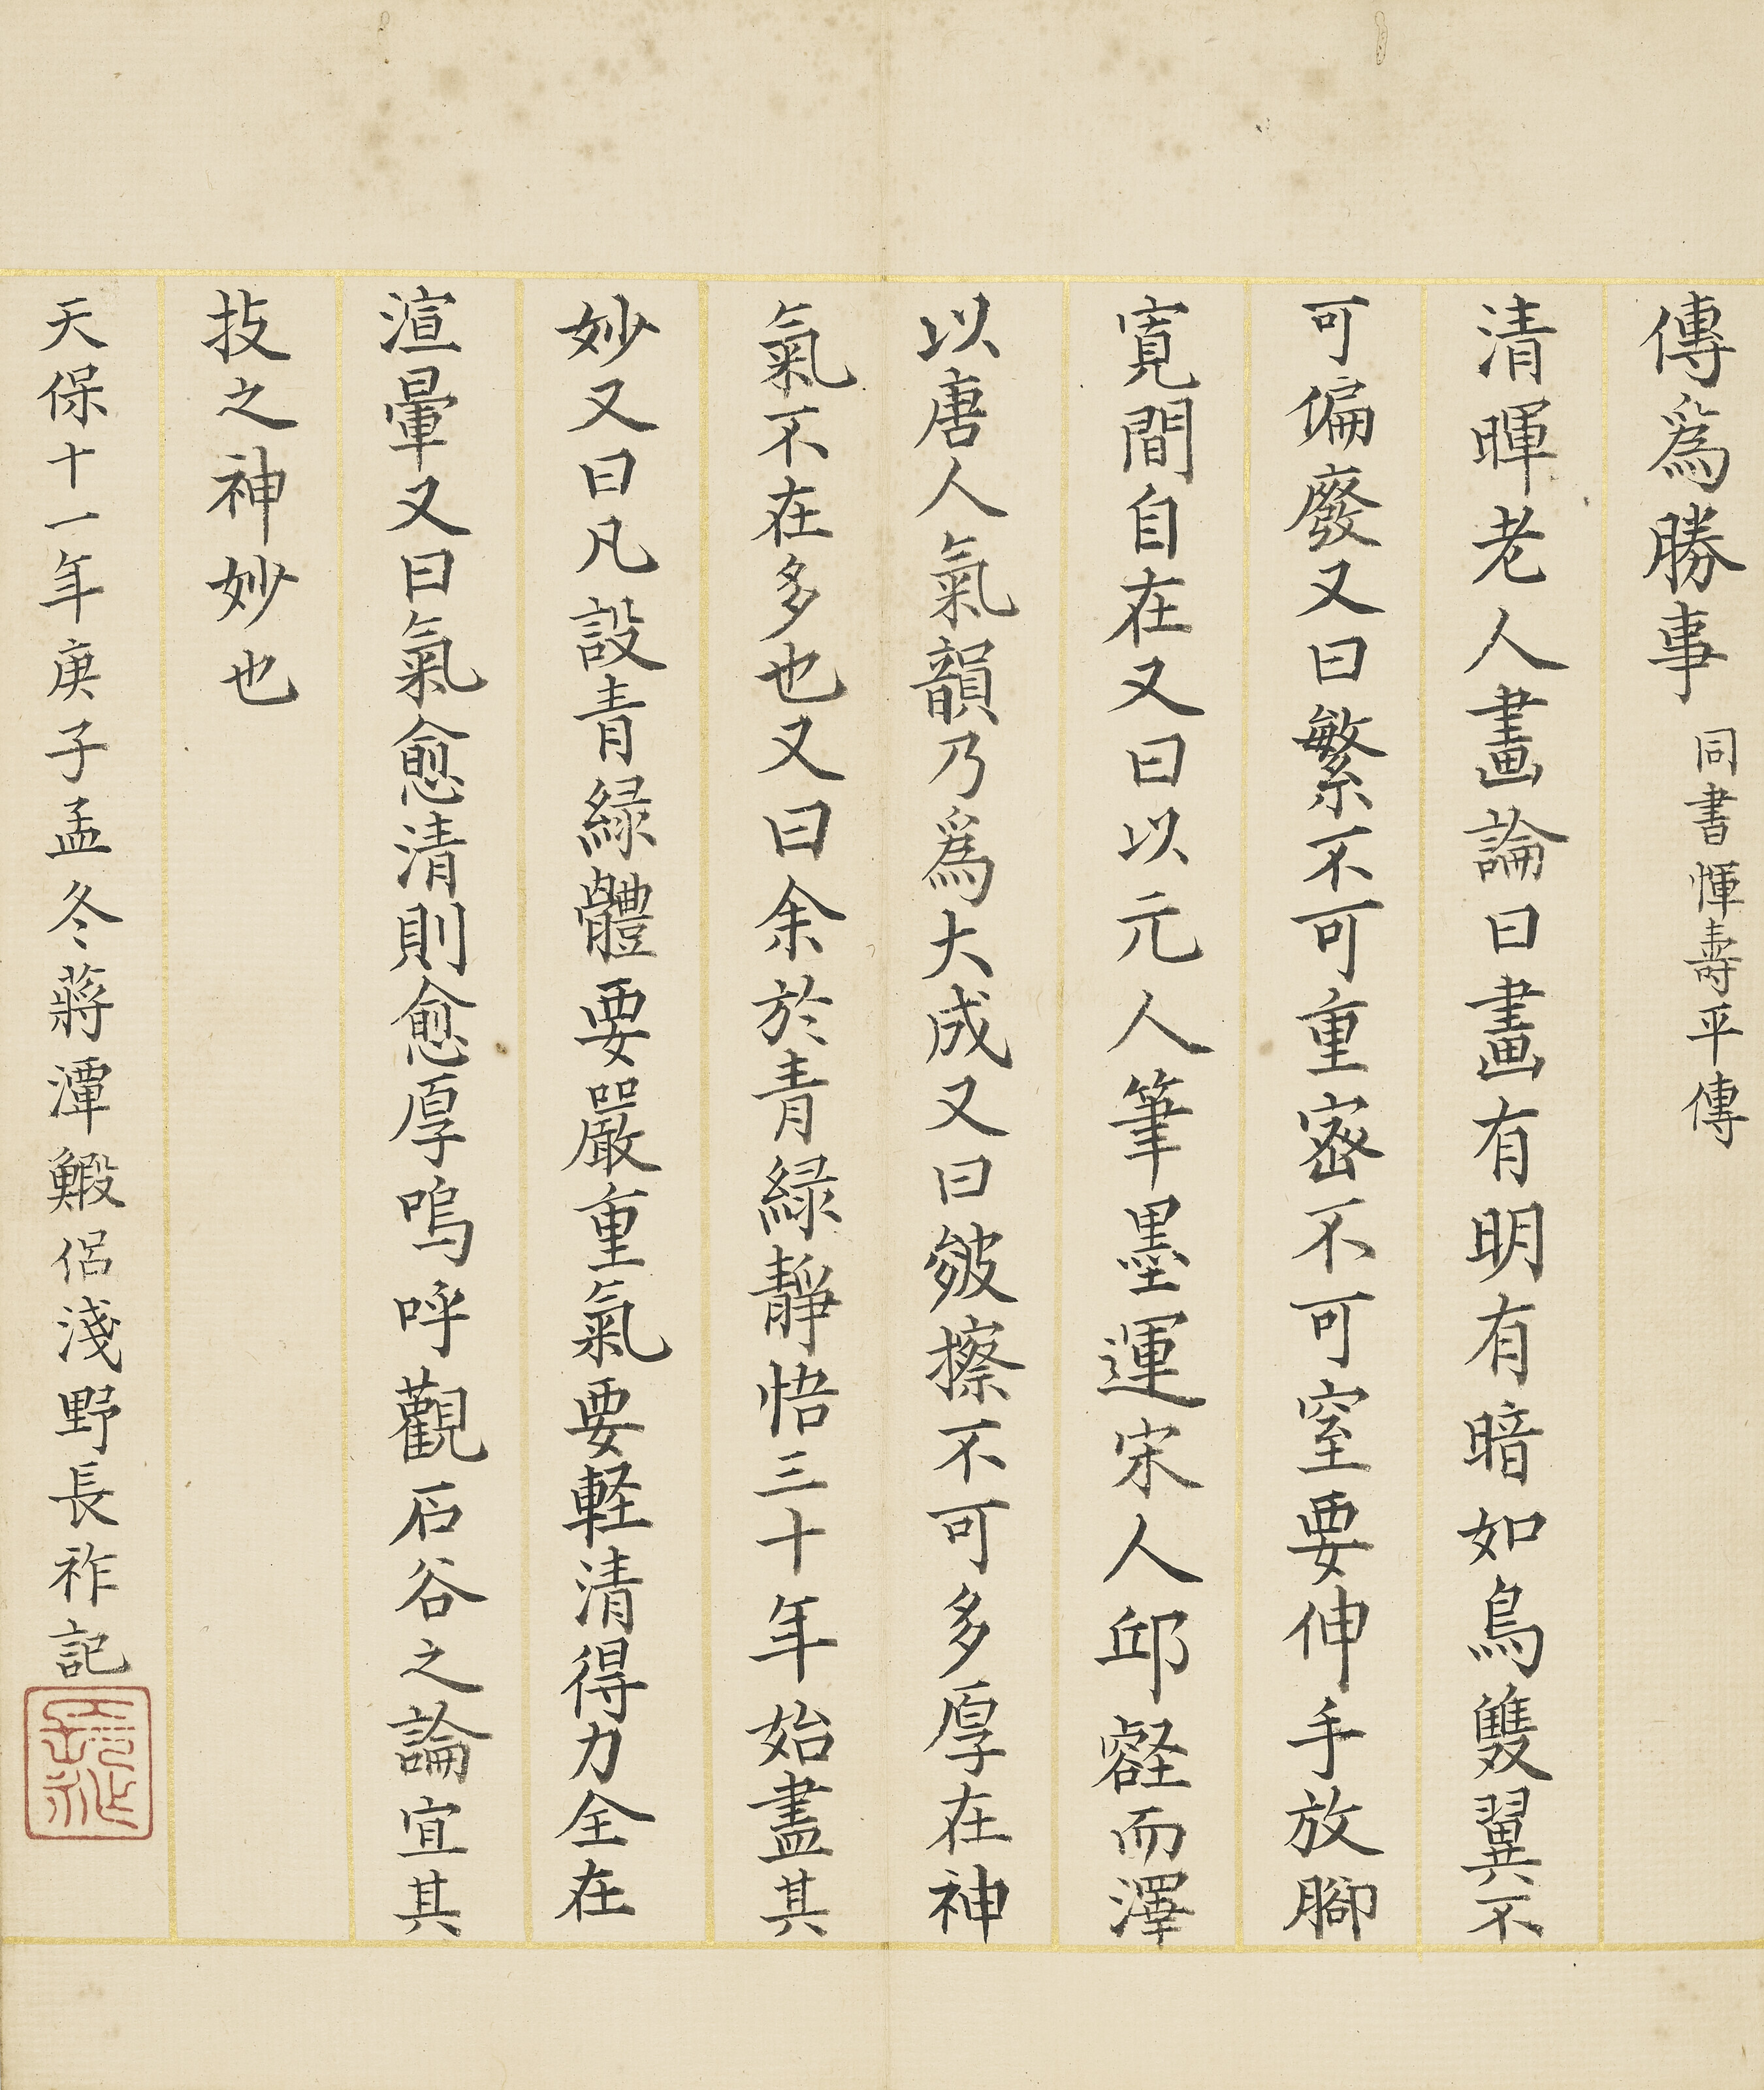 傳爲勝事 同書惲壽平傳
清暉老人畫論曰畫有明有暗如鳥雙翼不
可偏廢又曰繁不可重密不可窒要伸手放腳
寬間自在又曰以元人筆墨運宋人邱壑而澤
以唐人氣韻乃爲大成又曰皴擦不可多厚在神
氣不在多也又曰余於青緑靜悟三十年始盡其
妙又曰凡設青緑體要嚴重氣要軽清得力全在
渲暈又曰氣愈清則愈厚嗚呼觀石谷之論宜其
技之神妙也
天保十一年庚子孟冬蔣潭鰕侶淺野長祚記
長祚